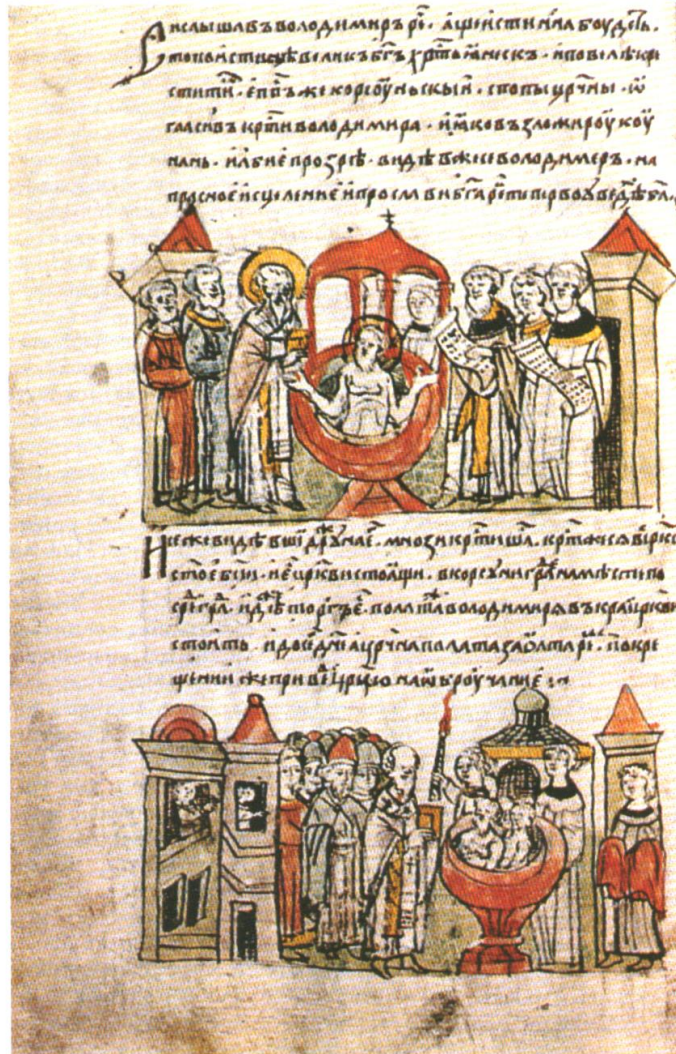 Си слышавъ володимиръ ре͠. аще истинна боудеть.
то поистинѣ великъ бг͠ъ хр͠тьꙗнескъ. и повелѣ кре
стити. еп͠пъ же корсоуньскыи. с попы цр͠чны. ѿ
гласивъ кр͠ти володимира. и ꙗко възложи роукоу
нань. и абие прозрѣ. видѣвже се володимеръ. на
прасное исцеление и прослави бг͠а рек͠ топервоувѣдѣ бг͠а
И се же видѣвши дружина е͠. мнози кр͠тишас͠. кр͠т же ся в црк͠ви
ст͠ое бц͠и. и е͠ црк͠ви стоꙗщи. в корсуни градѣ на мѣсте по
среди града. идѣже торгъ е͠. полата володимиря въ краи црк͠ви
стоить. и до сего дн͠е. а цр͠чна полата за олтаремъ. по кре
щении же приведе цр͠цю на оброучание :~